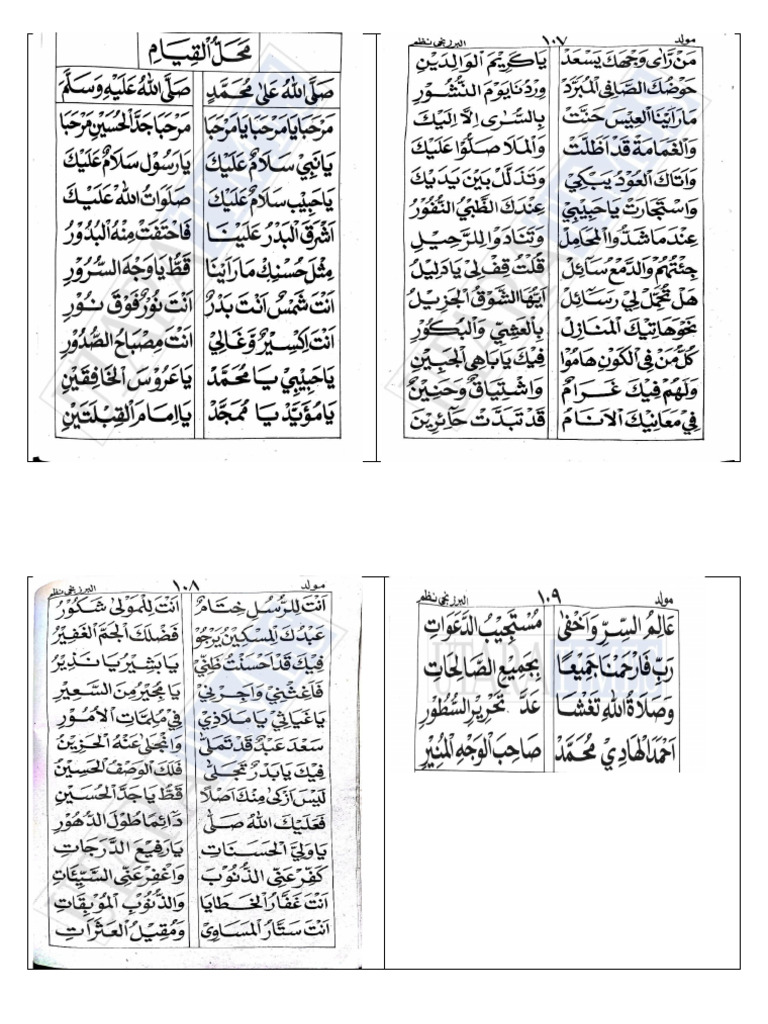 مَحَلُّ الْقِيَامِ
صَلَّى اللهُ عَلٰى مُحَمَّدٍ صَلَّى اللهُ عَلَيْهِ وَسَلَّمَ
مَرْحَبًا يَا مَرْحَبًا يَا مَرْحَبَا مَرْحَبًا جَدَّ الْحُسَيْنِ مَرْحَبَا
يَا نَبِيْ سَلَامٌ عَلَيْكَ يَا رَسُوْل سَلَامٌ عَلَيْكَ
يَا حَبِيْب سَلَامٌ عَلَيْكَ صَلَوَاتُ اللهْ عَلَيْكَ
اَشْرَقَ الْبَدْرُ عَلَيْنَا فَاخْتَفَتْ مِنْهُ الْبُدُوْرُ
مِثْلَ حُسْنِكْ مَا رَاَيْنَا قَطُّ يَا وَجْهَ السُّرُوْرِ
اَنْتَ شَمْسٌ اَنْتَ بَدْرٌ اَنْتَ نُوْرٌ فَوْقَ نُوْرِ
اَنْتَ اِكْسِيْرٌ وَّغَالِيْ اَنْتَ مِصْبَاحُ الصُّدُوْرِ
يَا حَبِيْبِيْ يَا مُحَمَّدْ يَا عَرُوْسَ الْخَافِقَيْنِ
يَا مُؤَيَّدْ يَا مُمَجَّدْ يَا اِمَامَ الْقِبْلَتَيْنِ
مولد ١٠٧ البرزنجي نظم
مَنْ رَّاٰى وَجْهَكَ يَسْعَدْ يَا كَرِيْمَ الْوَالِدَيْنِ
حَوْضُكَ الصَّافِي الْمُبَرَّدْ وِرْدُنَا يَوْمَ النُّشُوْرِ
مَا رَاَيْنَا الْعِيْسَ حَنَّتْ بِالسُّرٰى اِلَّا اِلَيْكَ
وَالْغَمَامَةْ قَدْ اَظَلَّتْ وَالْمَلَا صَلُّوْا عَلَيْكَ
وَاَتَاكَ الْعُوْدُ يَبْكِيْ وَتَذَلَّلْ بَيْنَ يَدَيْكَ
وَاسْتَجَارَتْ يَا حَبِيْبِيْ عِنْدَكَ الظَّبْيُ النَّفُوْرُ
عِنْدَمَا شَدُّوا الْمَحَامِلْ وَتَنَادَوْا لِلرَّحِيْلِ
جِئْتُهُمْ وَالدَّمْعُ سَائِلْ قُلْتُ قِفْ لِيْ يَا دَلِيْلُ
هَلْ تُحَمِّلْ لِيْ رَسَائِلْ اَيُّهَا الشَّوْقُ الْجَزِيْلُ
نَحْوَ هَاتِيْكَ الْمَنَازِلْ بِالْعَشِيِّ وَالْبُكُوْرِ
كُلُّ مَنْ فِي الْكَوْنِ هَامُوْا فِيْكَ يَا بَاهِي الْجَبِيْنِ
وَلَهُمْ فِيْكَ غَرَامٌ وَاشْتِيَاقٌ وَحَنِيْنٌ
فِيْ مَعَانِيْكَ الْاَنَامُ قَدْ تَبَدَّتْ حَائِرِيْنَ
مولد ١٠٨ البرزنجي نظم
اَنْتَ لِلرُّسُلِ خِتَامٌ اَنْتَ لِلْمَوْلٰى شَكُوْرُ
عَبْدُكَ الْمِسْكِيْنُ يَرْجُوْ فَضْلَكَ الْجَمَّ الْغَفِيْرُ
فِيْكَ قَدْ اَحْسَنْتُ ظَنِّيْ يَا بَشِيْرُ يَا نَذِيْرُ
فَاَغِثْنِيْ وَاَجِرْنِيْ يَا مُجِيْرُ مِنَ السَّعِيْرِ
يَا غَيَاثِيْ يَا مَلَاذِيْ فِيْ مُلِمَّاتِ الْاُمُوْرِ
سَعْدَ عَبْدٌ قَدْ تَمَلّٰى وَانْجَلٰى عَنْهُ الْحَزِيْنُ
فِيْكَ يَا بَدْرٌ تَجَلّٰى فَلَكَ الْوَصْفُ الْحَسِيْنُ
لَيْسَ اَزْكٰى مِنْكَ اَصْلًا قَطُّ يَا جَدَّ الْحُسَيْنِ
فَعَلَيْكَ اللهُ صَلّٰى دَائِمًا طُوْلَ الدُّهُوْرِ
يَا وَلِيَّ الْحَسَنَاتِ يَا رَفِيْعَ الدَّرَجَاتِ
كَفِّرْ عَنِّي الذُّنُوْبَ وَاغْفِرْ عَنِّي السَّيِّئَاتِ
اَنْتَ غَفَّارُ الْخَطَايَا وَالذُّنُوْبِ الْمُوْبِقَاتِ
اَنْتَ سَتَّارُ الْمَسَاوِيْ وَمُقِيْلُ الْعَثَرَاتِ
مولد ١٠٩ البرزنجي نظم
عَالِمُ السِّرِّ وَاَخْفٰى مُسْتَجِيْبُ الدَّعَوَاتِ
رَبِّ فَارْحَمْنَا جَمِيْعًا بِجَمِيْعِ الصَّالِحَاتِ
وَصَلَاةُ اللهِ تَغْشَا عَدَّ تَحْرِيْرِ السُّطُوْرِ
اَحْمَدَ الْهَادِيْ مُحَمَّدْ صَاحِبَ الْوَجْهِ الْمُنِيْرِ